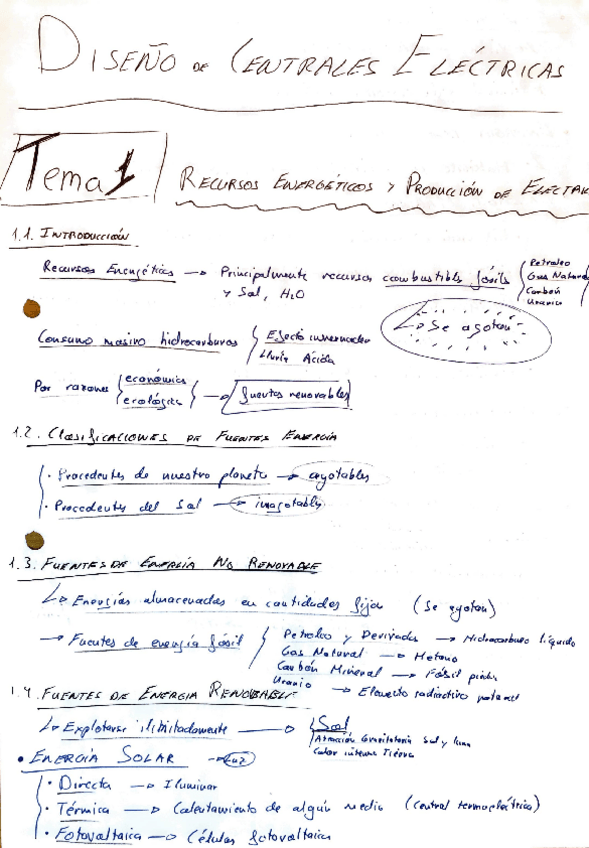 DISEÑO DE CENTRALES ELÉCTRICAS
Tema 1 RECURSOS ENERGÉTICOS Y PRODUCCIÓN DE ELECTRI
1.1. INTRODUCCIÓN
Recursos Energéticos → Principalmente recursos combustibles fósils { Petroleo
Gas Natural
Carbón
Uranio
y Sol, H2O
↳ Se agotan
Consumo masivo hidrocarburos { Efecto invernadero
Lluvia Ácida
Por razones { económicas
ecológicas } → fuentes renovables
1.2. Clasificaciones DE FUENTES ENERGÍA
· Procedentes de nuestro planeta → agotables
· Procedentes del Sol → inagotables
1.3. FUENTES DE ENERGÍA NO RENOVABLE
↳ Energías almacenadas en cantidades fijas (Se agotan)
→ Fuentes de energía fósil { Petroleo y Derivados → Hidrocarburo líquido
Gas Natural → Metano
Carbón Mineral → Fósil
Uranio → Elemento radiactivo natural
1.4. FUENTES DE ENERGIA RENOVABLE
↳ Explotarse ilimitadamente → { Sol
Atracción Gravitatoria Sol y luna
Calor interno Tierra
• ENERGÍA SOLAR → Luz
· Directa → Iluminar
· Térmica → Calentamiento de algún medio (central termoeléctrica)
· Fotovoltaica → Células fotovoltaicas